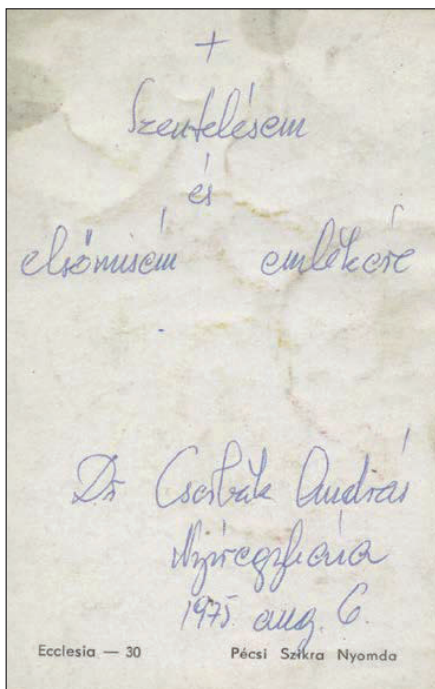 +
Szentelésem
és
elsőmisém emlékére
Dr Csorbák András
Nyíregyháza
1975. aug. 6.
Ecclesia — 30 Pécsi Szikra Nyomda